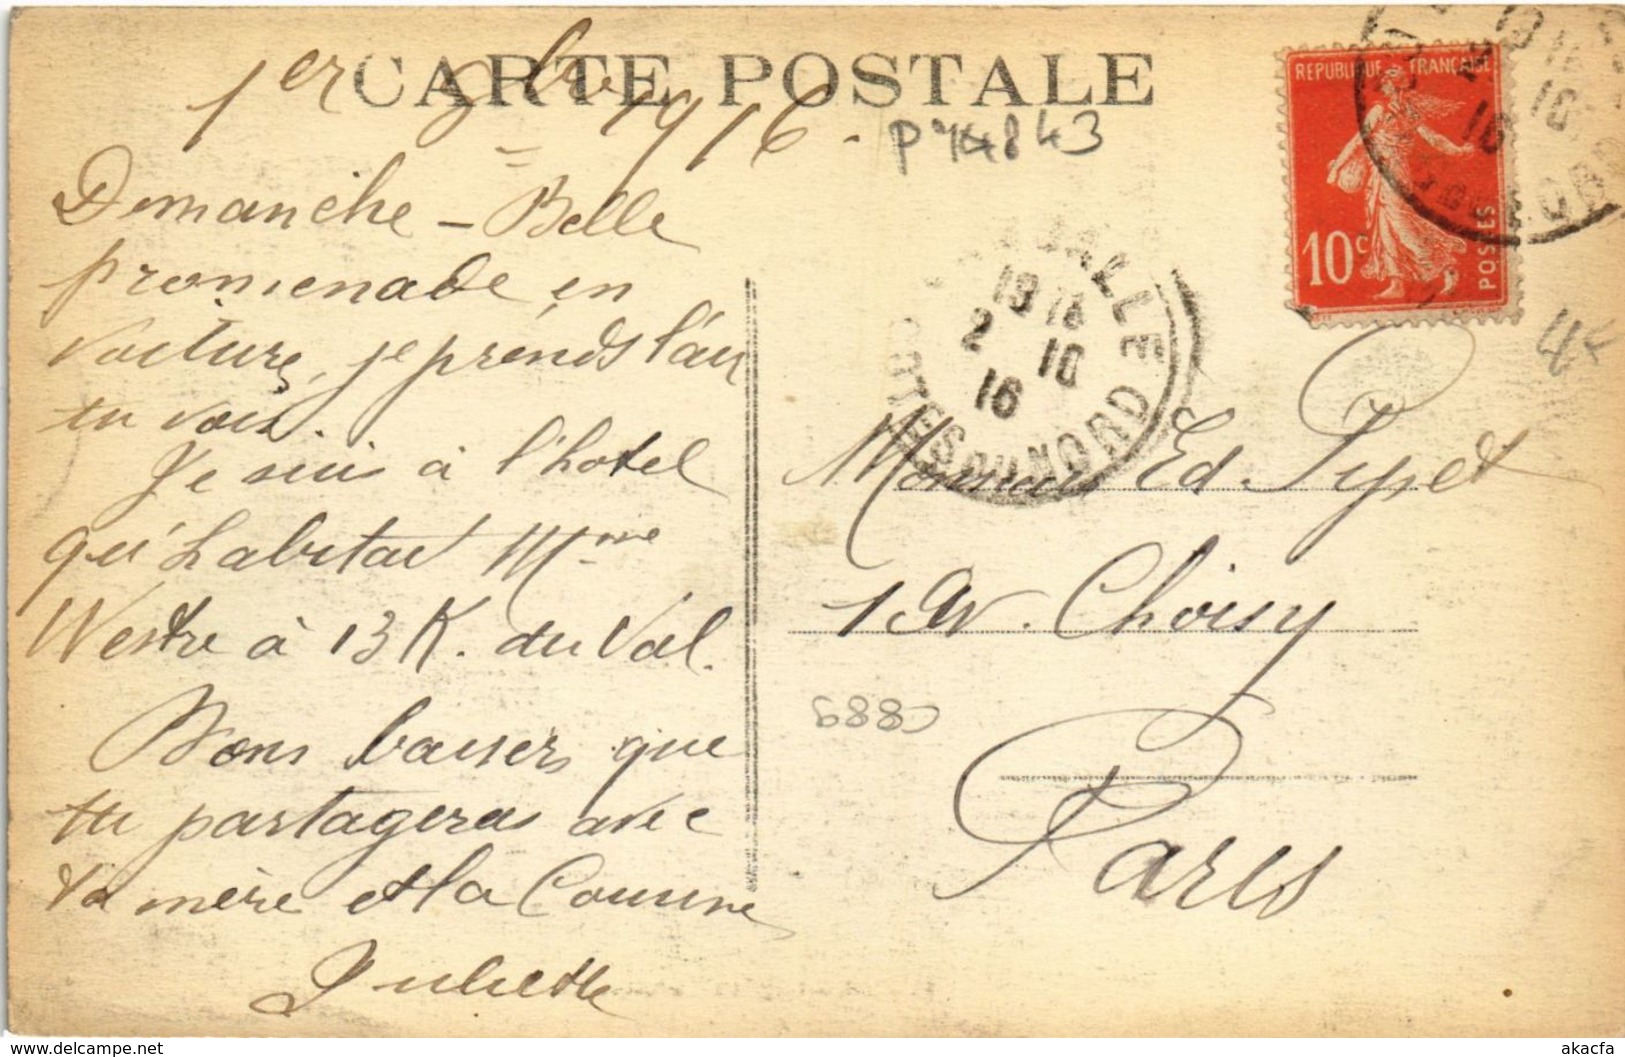 CARTE POSTALE
1er 8bre 1916 -
P 74843
Dimanche - Belle
promenade en
voiture, je prends l'air
tu vois.
Je suis à l'hotel
qu'habitai Mme
à 13 K. du Val.
Bons baisers que
tu partageras avec
ta mère et la Cousine
Juliette
REPUBLIQUE FRANÇAISE
10c
POSTES
19 10
2 10
16
COTES DU NORD
4€
Monsieur Ed. Pypet
1 Av. Choisy
Paris
akacfa